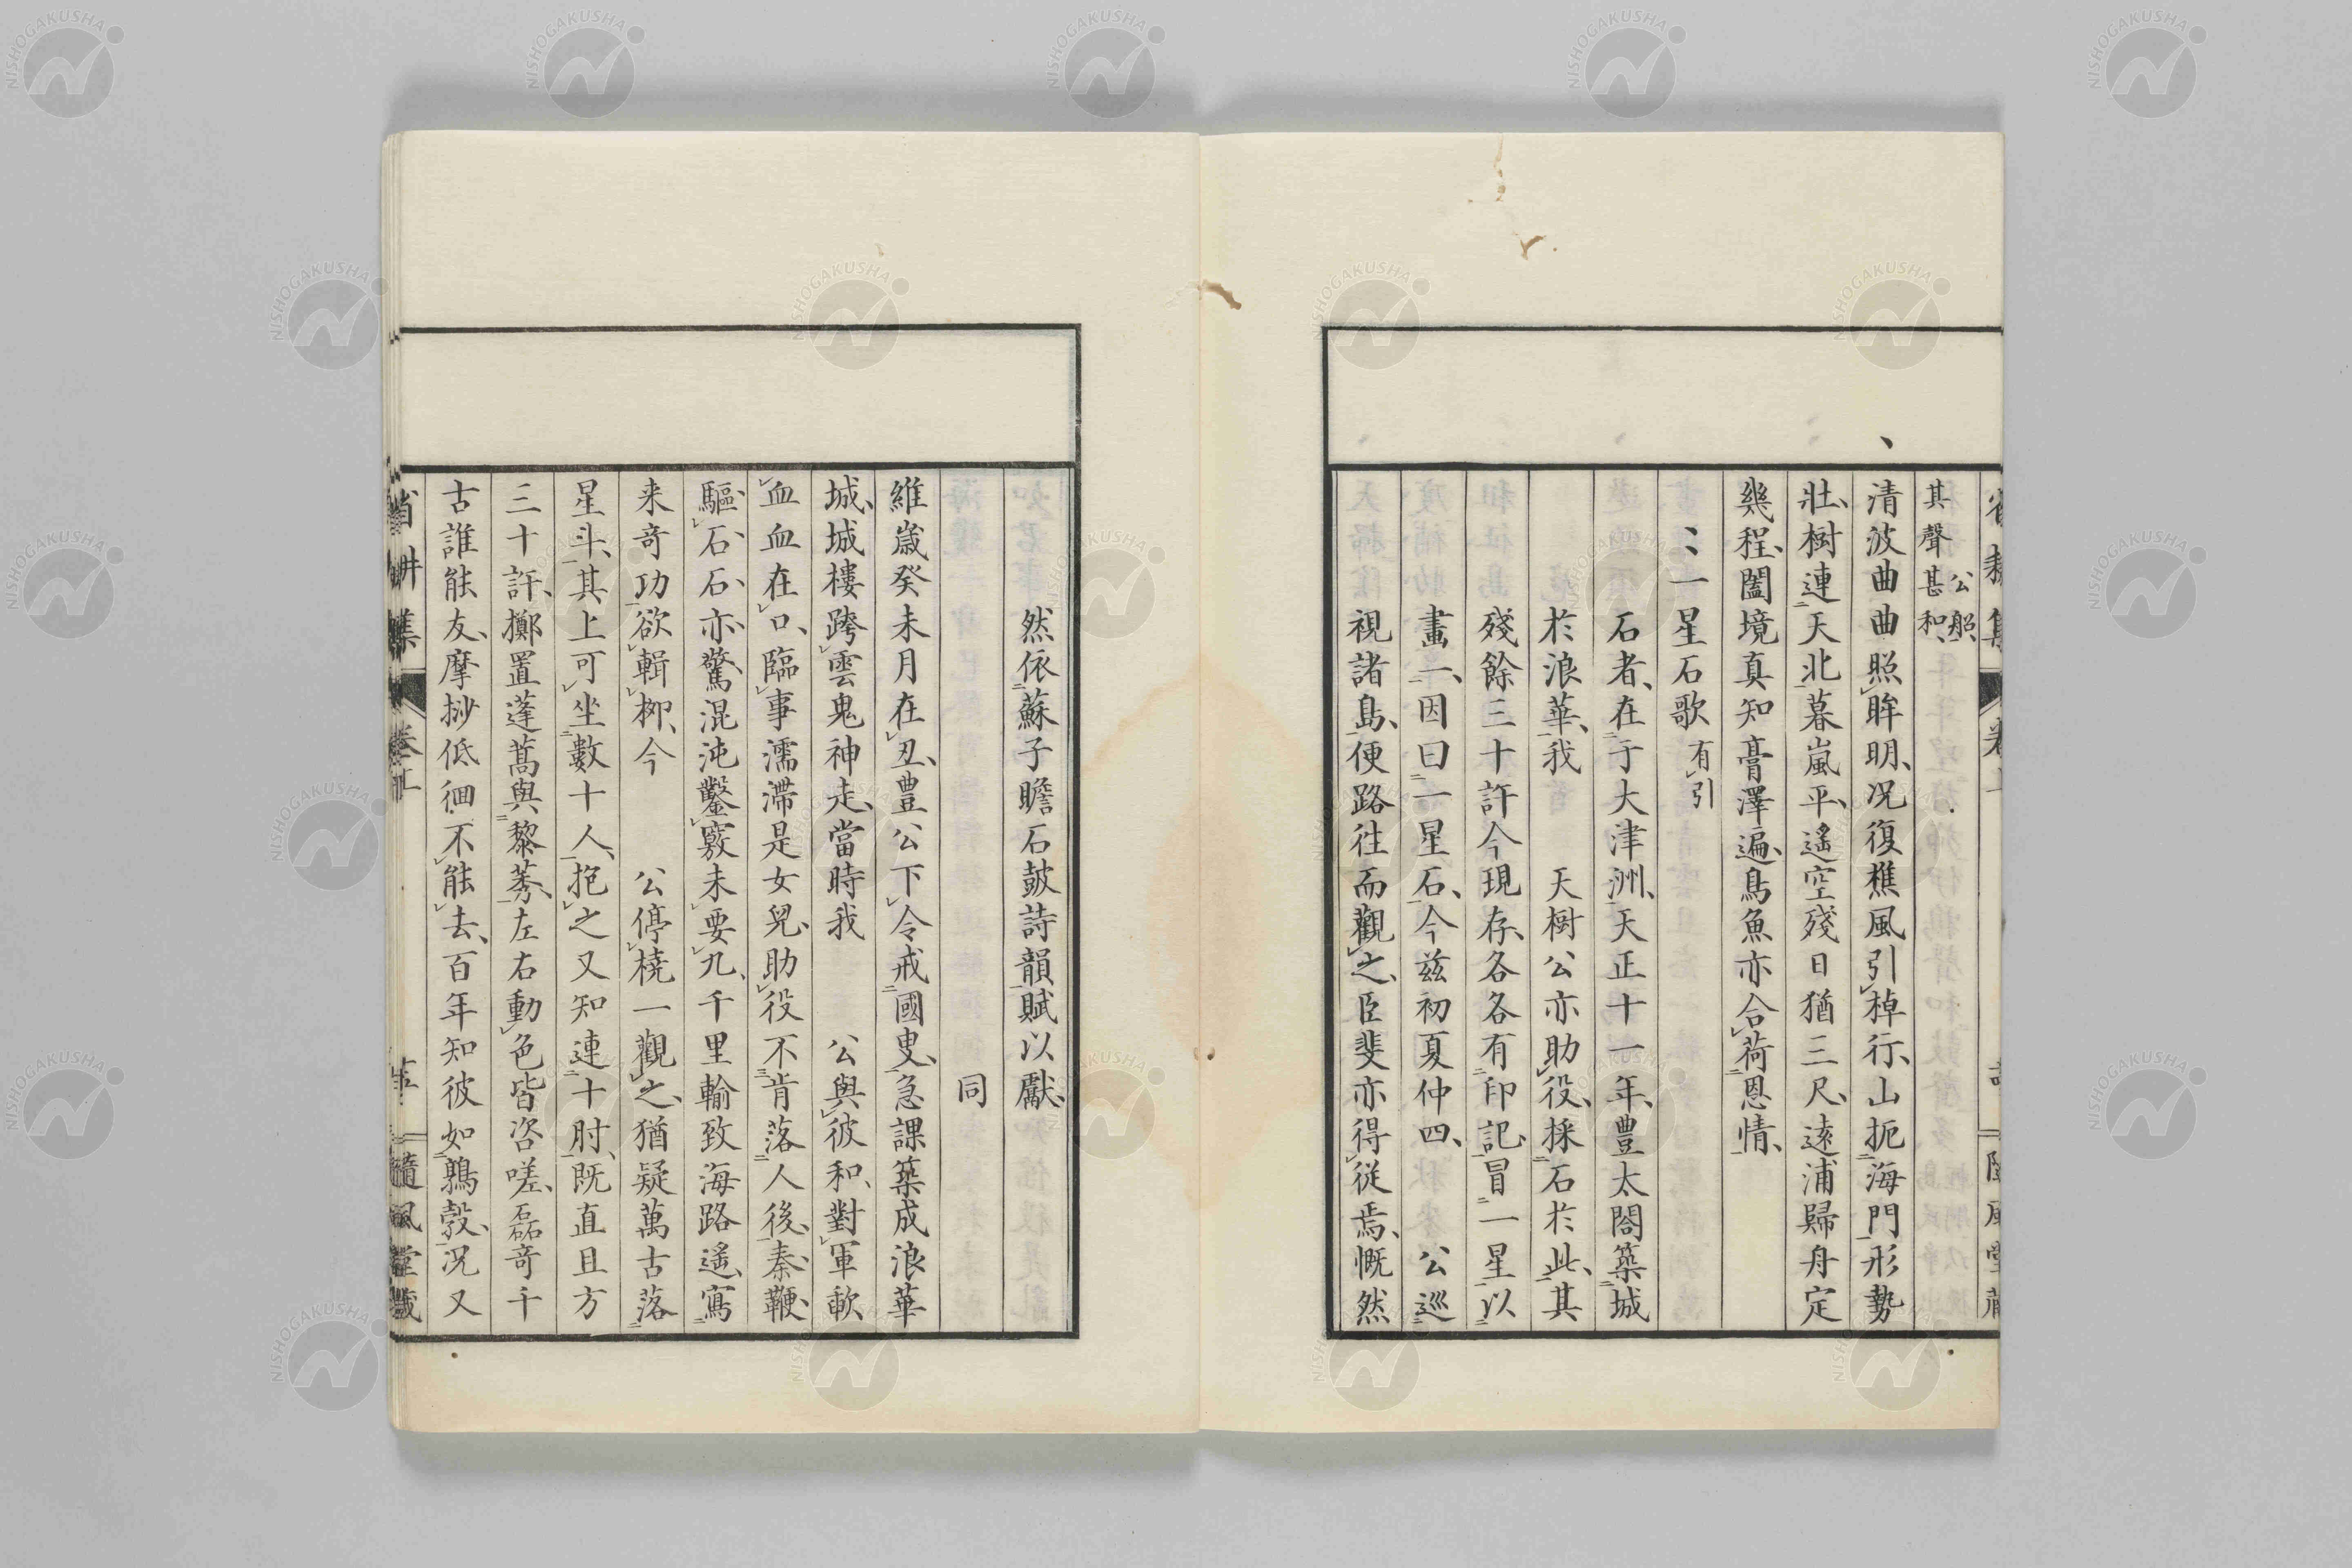 省耕集
公船、
其聲甚和、
清波曲曲照眸明、况復樵風引棹行、山扼海門形勢
壯、樹連天北暮嵐平、遙空殘日猶三尺、遠浦歸舟定
幾程、闔境真知膏澤遍、鳥魚亦合荷恩情、
一星石歌 有引
石者、在于大津洲、天正十一年、豊太閤築城
於浪華、我 天樹公亦助役、採石於此、其
殘餘三十許今現存、各各有印記、冒一星以
畫一、因曰一星石、今茲初夏仲四、 公巡
視諸島、便路往而觀之、臣斐亦得從焉、慨然
然依蘇子瞻石皷詩韻賦以獻、
同
維歲癸未月在丑、豊公下令戒國叟、急課築成浪華
城、城樓跨雲鬼神走、當時我 公與彼和、對軍歃
血血在口、臨事濡滯是女兒、助役不肯落人後、秦鞭
驅石石亦驚、混沌鑿竅未要九、千里輸致海路遙、寫
来竒功欲輯柳、今 公停橈一觀之、猶疑萬古落
星斗、其上可坐數十人、抱之又知連十肘、既直且方
三十許、擲置蓬蒿與黎莠、左右動色皆咨嗟、磊竒千
古誰能友、摩挱低徊不能去、百年知彼如鶉鷇、况又
省耕集 卷上 隨風堂藏
NISHOGAKUSHA